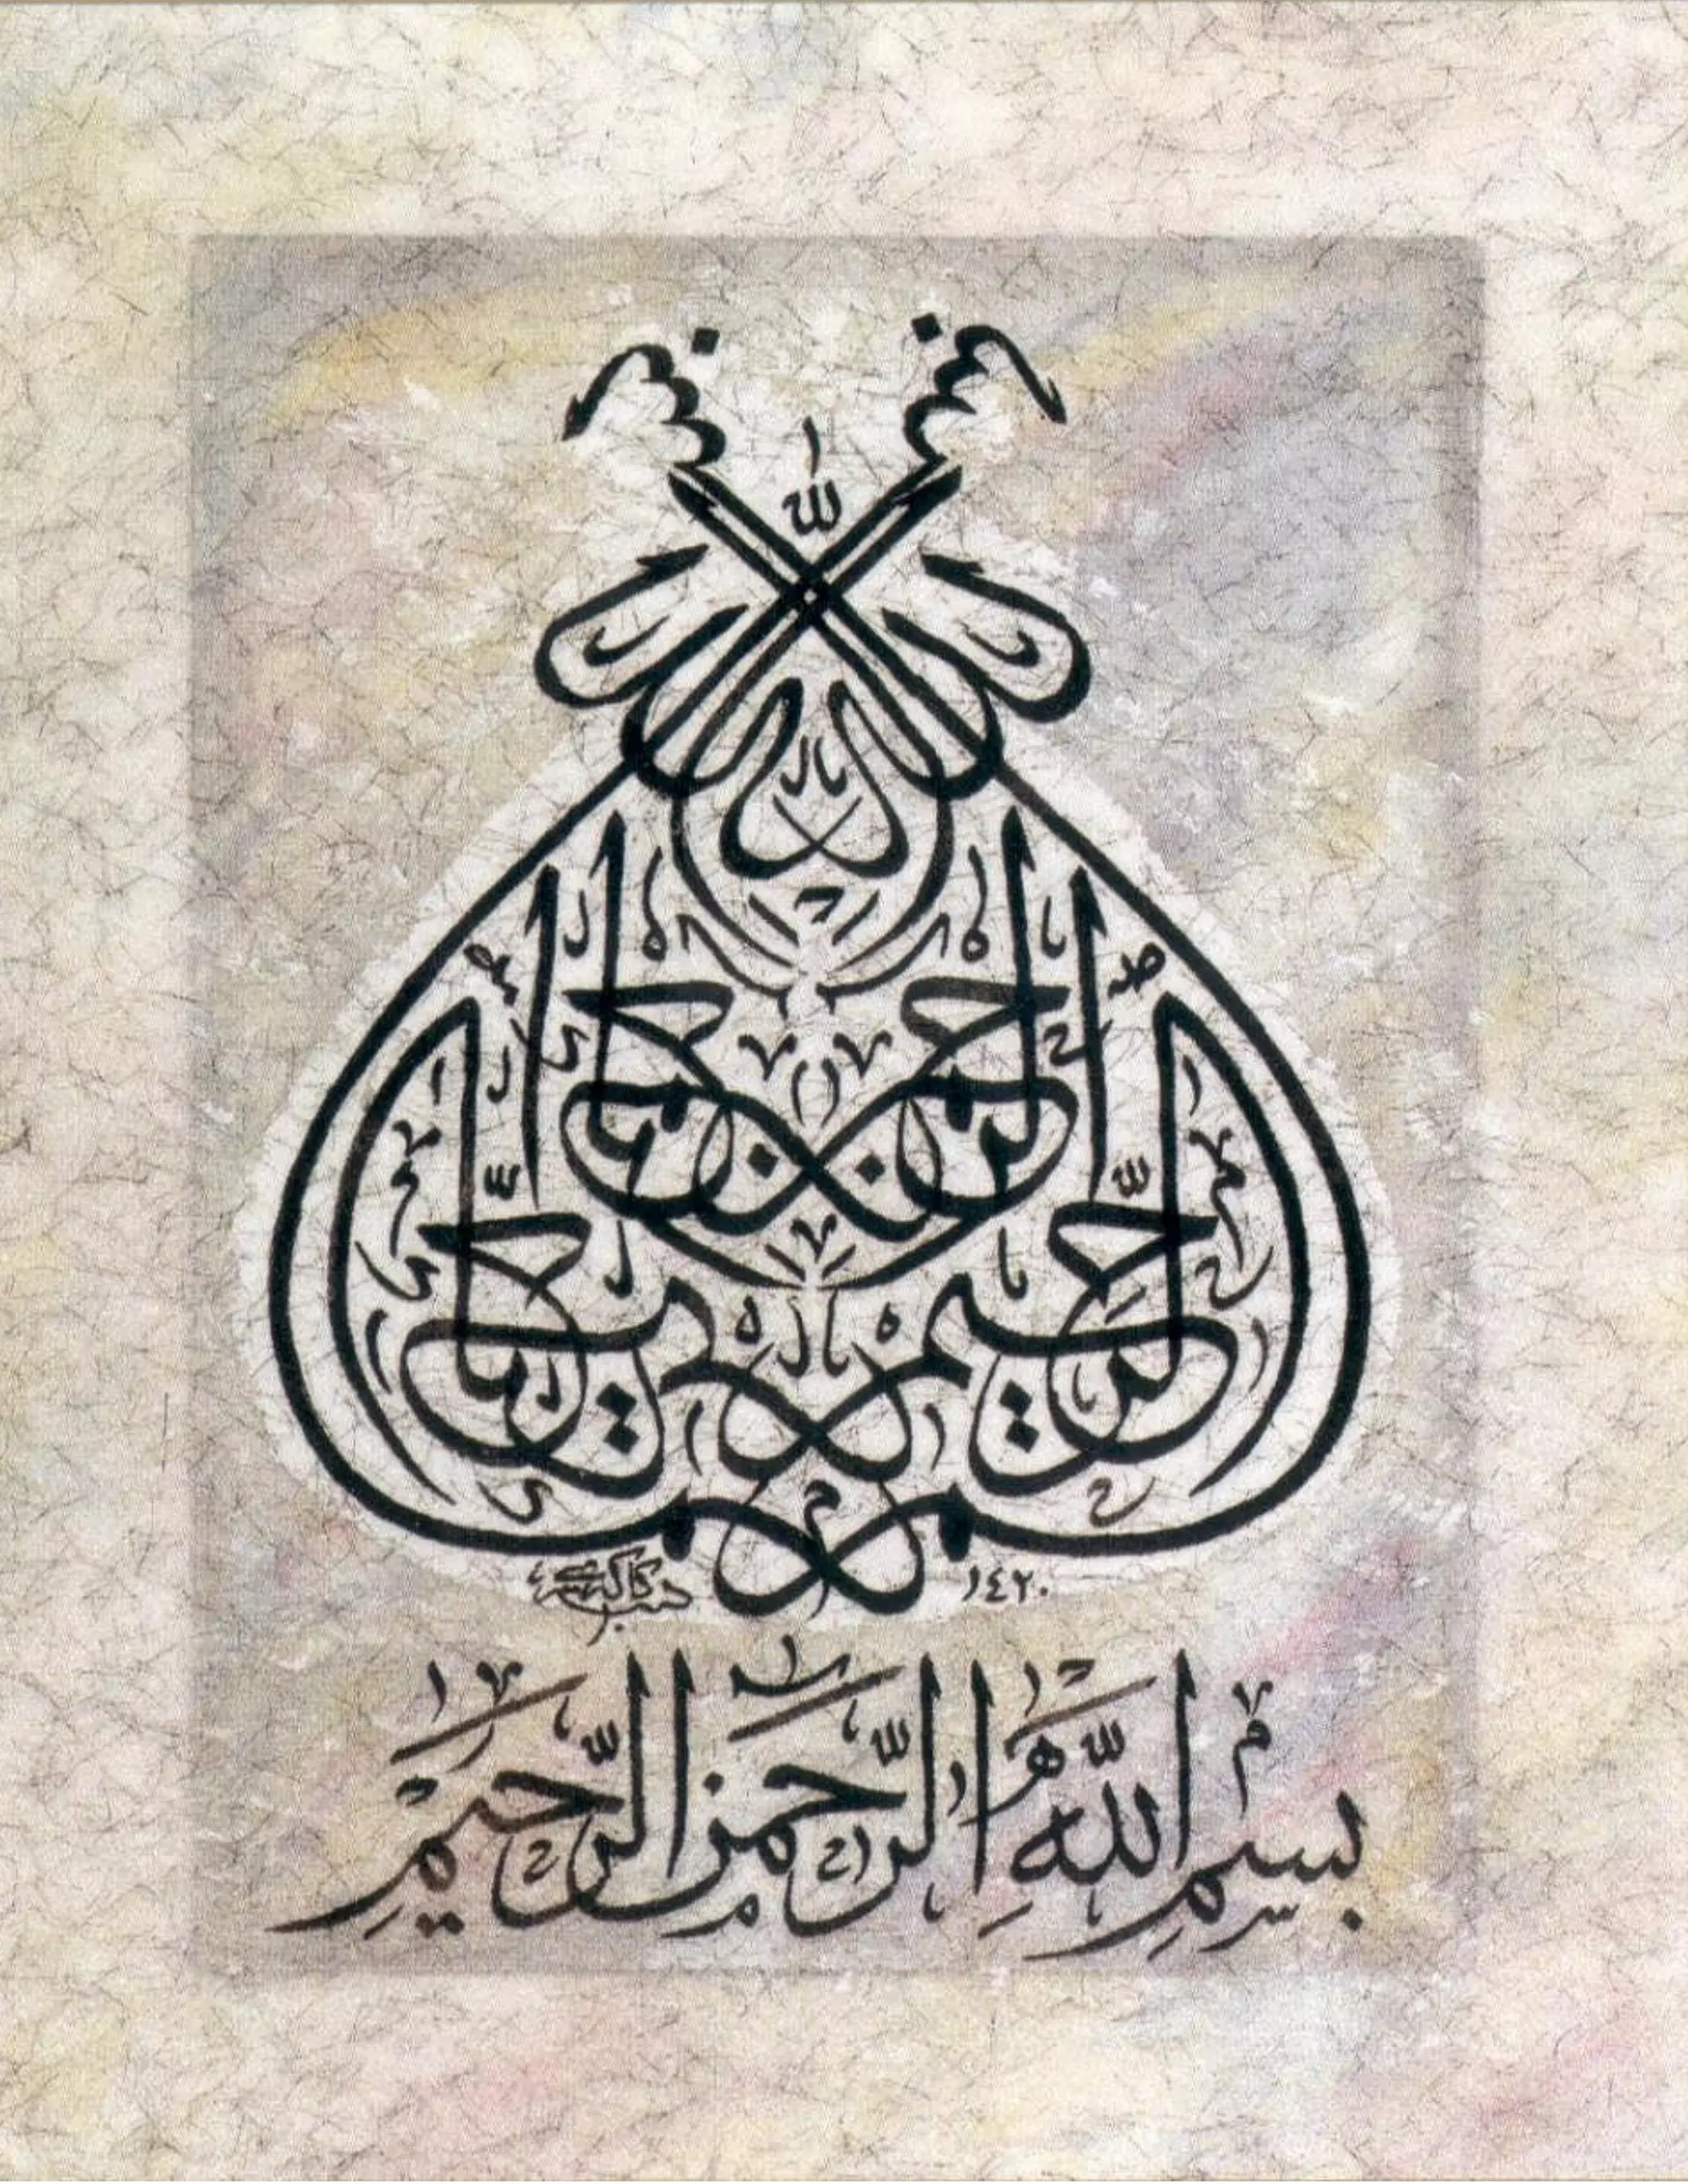 بسم الله الرحمن الرحيم
١٤٢٠
بِسْمِ اللَّهِ الرَّحْمَٰنِ الرَّحِيمِ